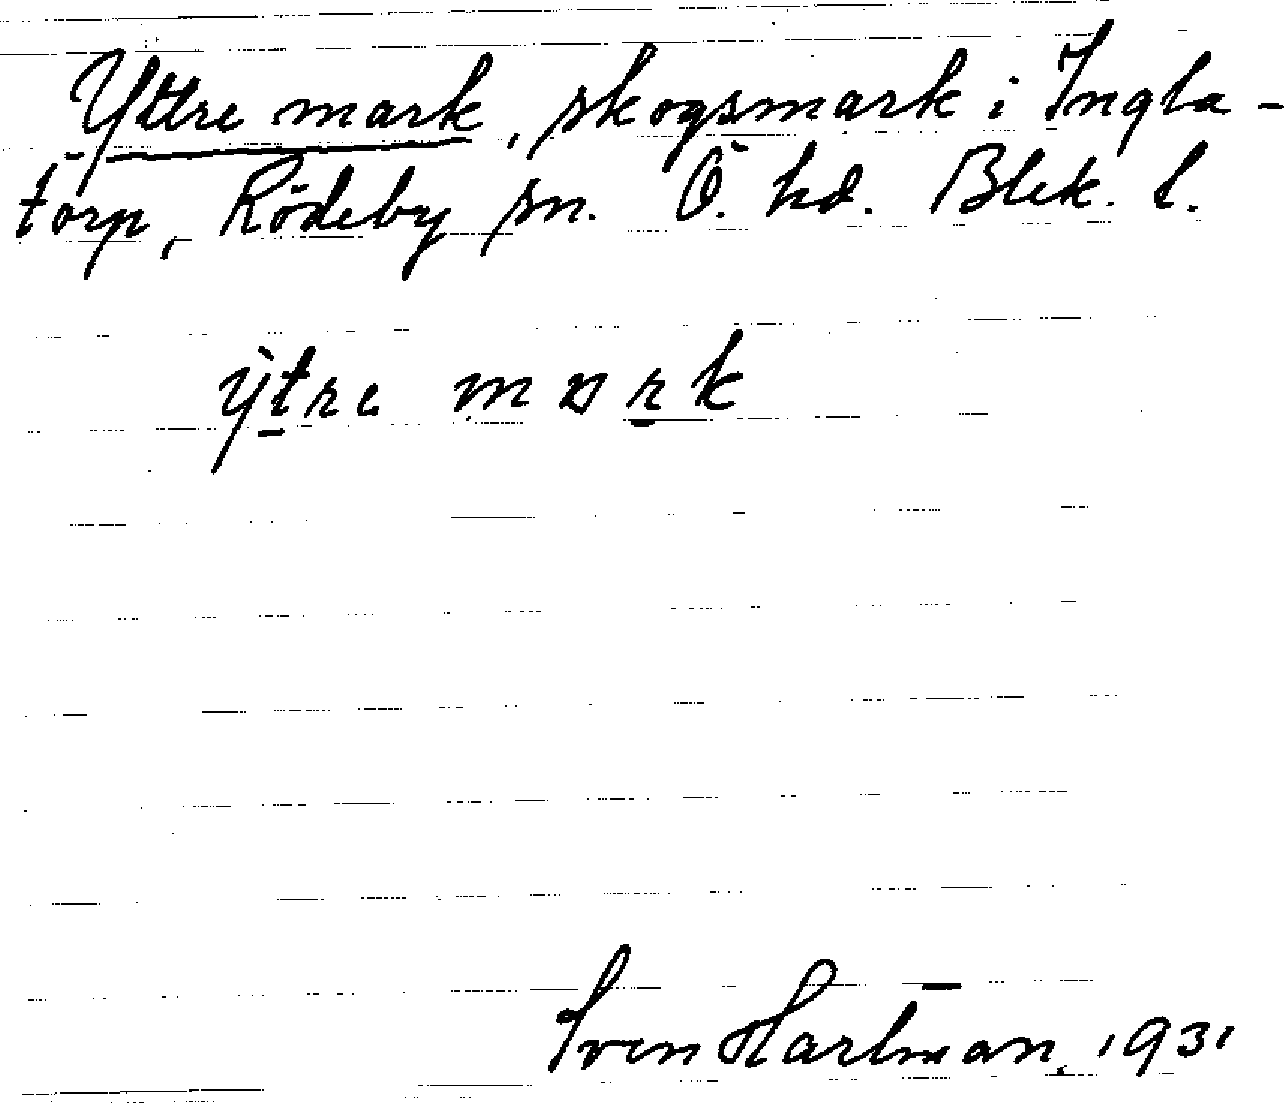 Yttre mark, skogsmark i Ingla-
torp, Rödeby sn. Ö. hd. Blek. l.
ỳtre mɒrk
Sven Hartman, 1931